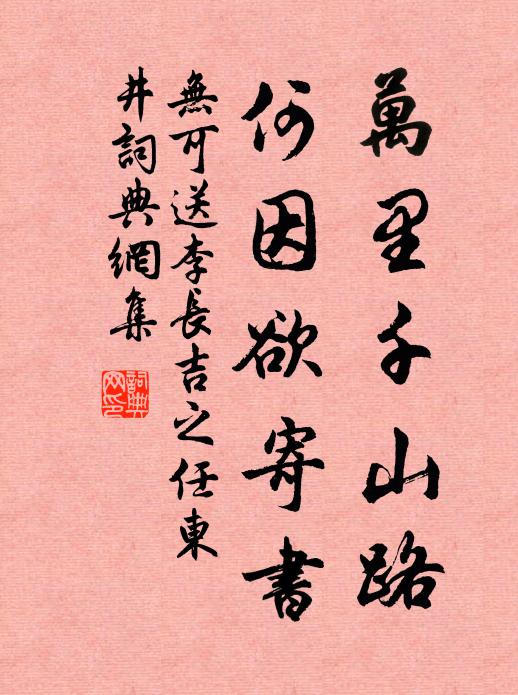 萬里千山路
何因欲寄書
無可送李長吉之任東
井詞典網集
詞典
网印